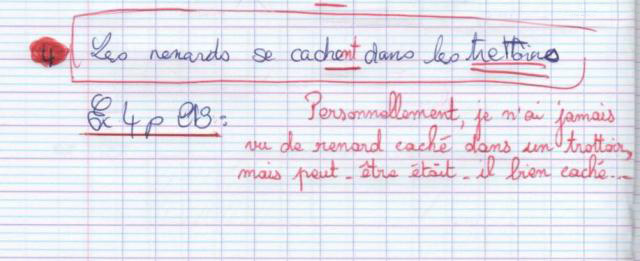 4 Les renards se cachent dans les trottoirs
Ex 4 p 213 :
Personnellement, je n'ai jamais
vu de renard caché dans un trottoir,
mais peut-être était-il bien caché...